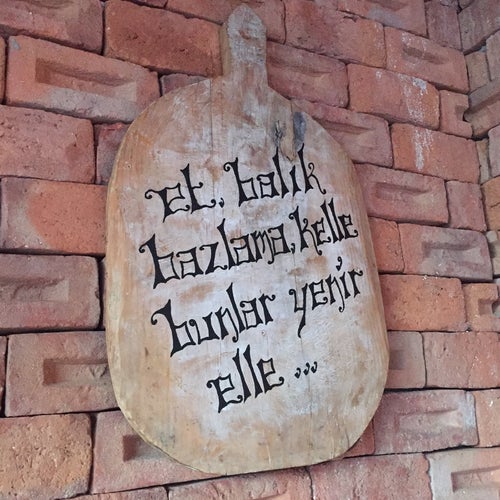 et. balık
bazlama, kelle
bunlar yenir
elle ...